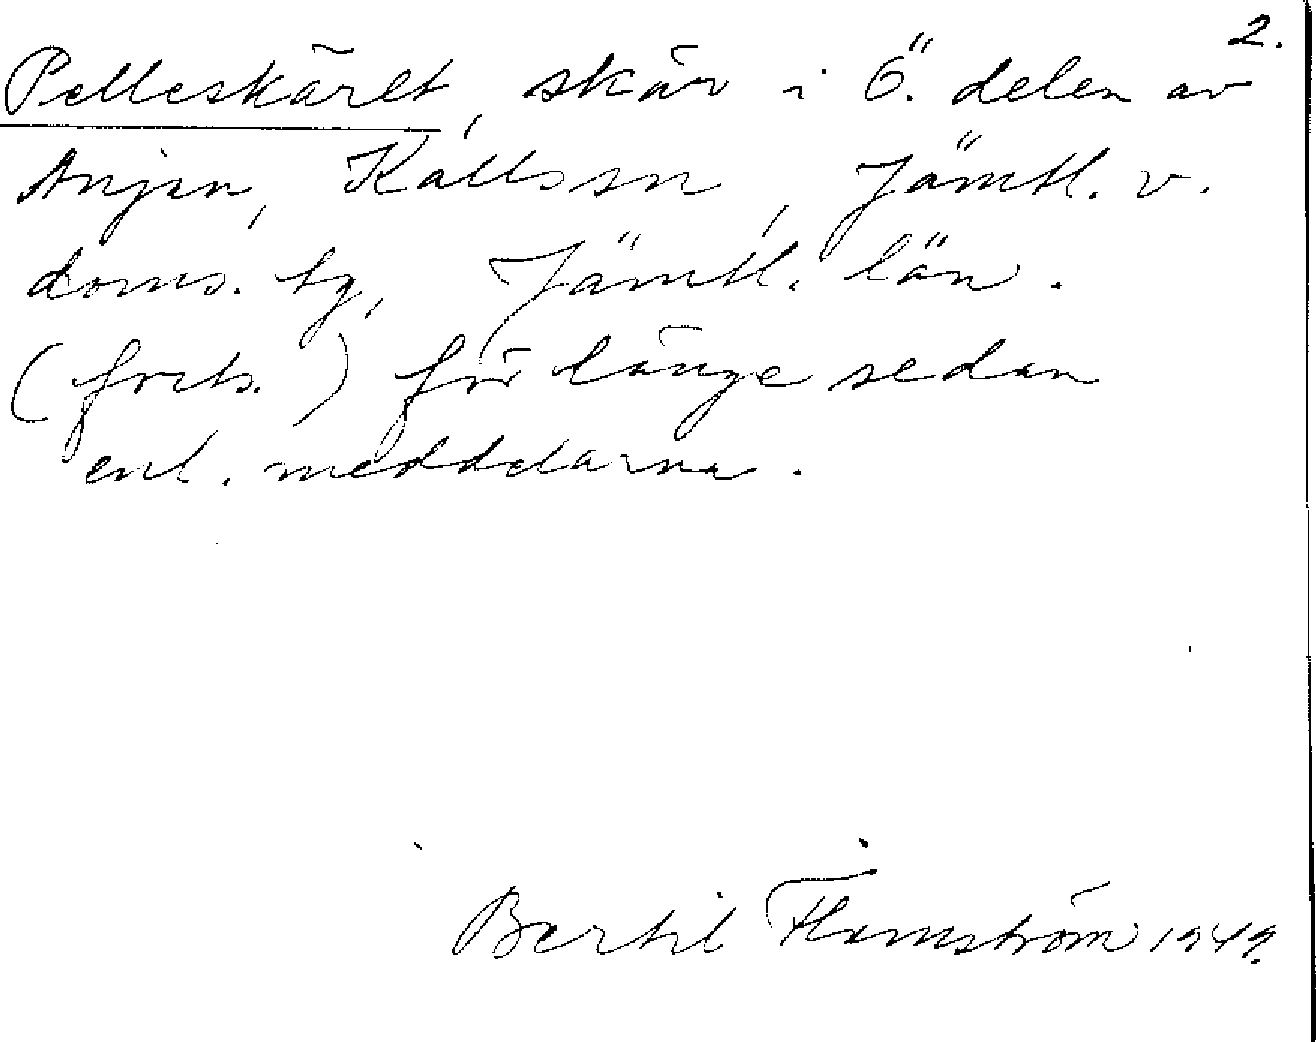 2.
Pelleskäret, skär i Ö. delen av
Anjan, Kalls sn, Jämtl. v.
doms. tg, Jämtl. län.
(forts.) för länge sedan
enl. meddelarna.
Bertil Flemström 1949.